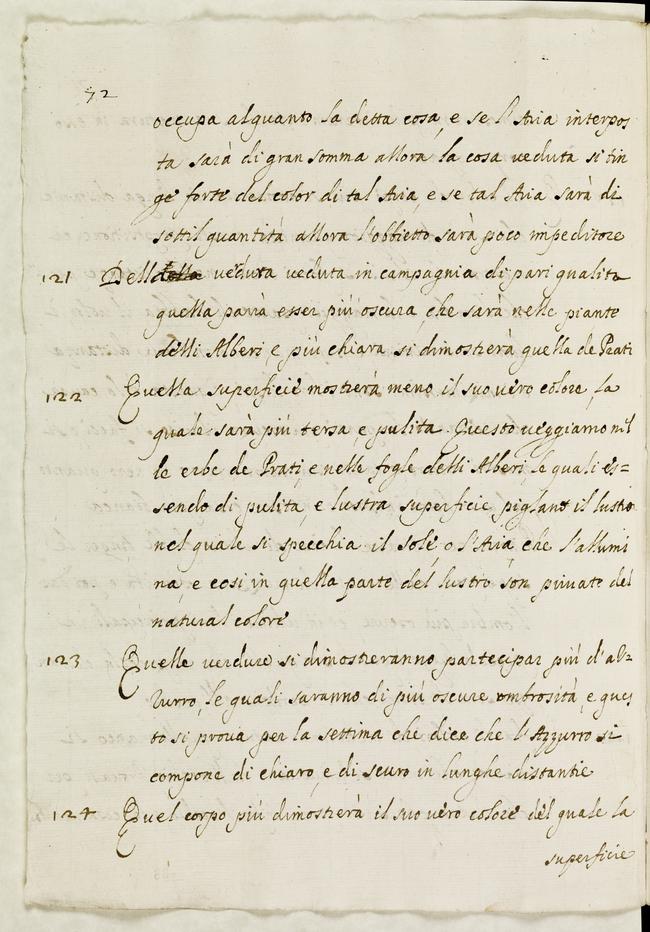 72
occupa alquanto la detta cosa, e se l'Aria interpos
ta sarà di gran somma allora la cosa veduta si tin
ge forte del color di tal Aria, e se tal Aria sarà di
sottil quantità allora l'obbietto sarà poco impeditore
121 Dell della verdura veduta in campagnia di pari qualita
quella parrà esser più oscura, che sarà nelle piante
delli Alberi, e più chiara si dimostrerà quella de Prati
122 Quella superficie mostrerà meno il suo vero colore, la
quale sarà più tersa, e pulita. Questo veggiamo nel
le erbe de Prati, e nelle fogle delli Alberi, le quali es=
sendo di pulita, e lustra superficie piglano il lustro
nel quale si specchia il sole, o l'Aria, che l'allumi
na, e così in quella parte del lustro son private del
natural colore
123 Quelle verdure si dimostreranno partecipar più d'az=
zurro, le quali saranno di più oscure ombrosità, e ques
to si prova per la settima che dice che l'Azzurro si
compone di chiaro, e di scuro in lunghe distantie
124 Quel corpo più dimostrerà il suo vero colore del quale la
superficie